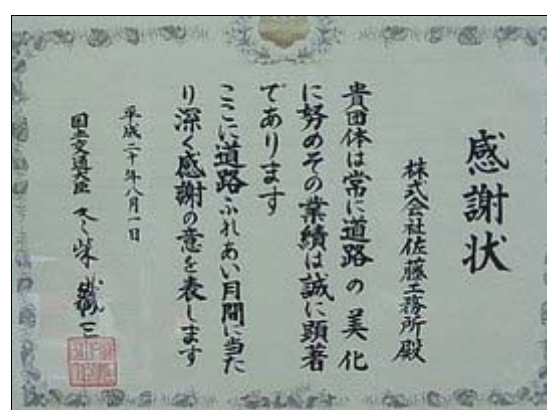 感謝状
株式会社佐藤工務所殿
貴団体は常に道路の美化
に努めその業績は誠に顕著
であります
ここに道路ふれあい月間に当た
り深く感謝の意を表します
平成二十年八月一日
国土交通大臣 冬柴鐵三